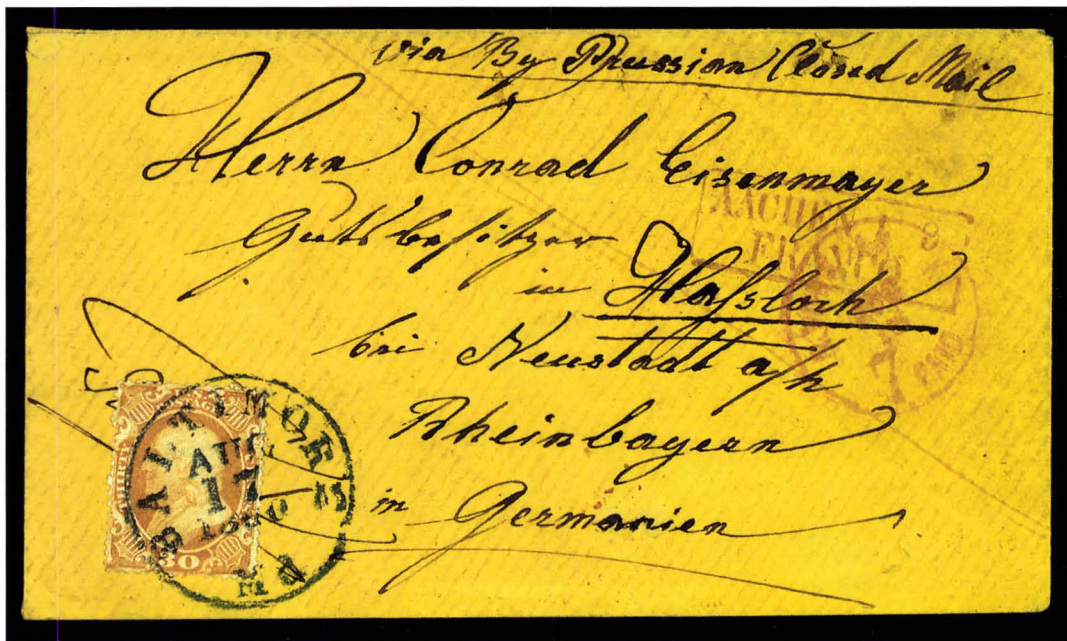 via By Prussian Closed Mail
Herrn Conrad Eisenmayer
Gutsbesitzer
in Haſsloch
bei Neustadt a/h
Rheinbayern
in Germanien
AACHEN
FRANCO
PAID
7
BALTIMORE Md
AUG
17
1860
30